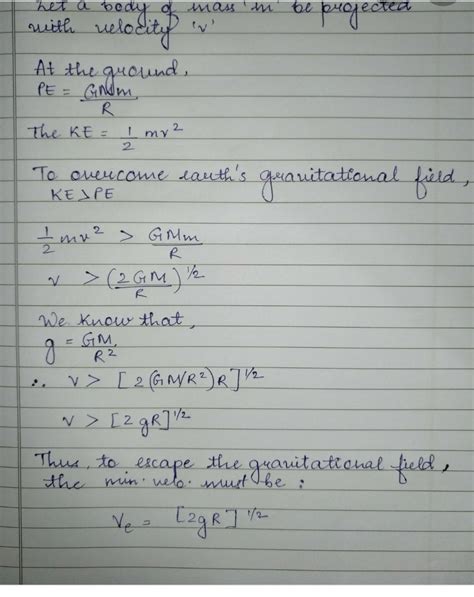 Let a body of mass 'm' be projected
with velocity 'v'
At the ground,
PE = GMm/R
The KE = 1/2 mv²
To overcome earth's gravitational field,
KE > PE
1/2 mv² > GMm/R
v > (2GM/R)^1/2
We know that,
g = GM/R²
∴ v > [2(GM/R²)R]^1/2
v > [2gR]^1/2
Thus, to escape the gravitational field,
the min. velo. must be :
Ve = [2gR]^1/2